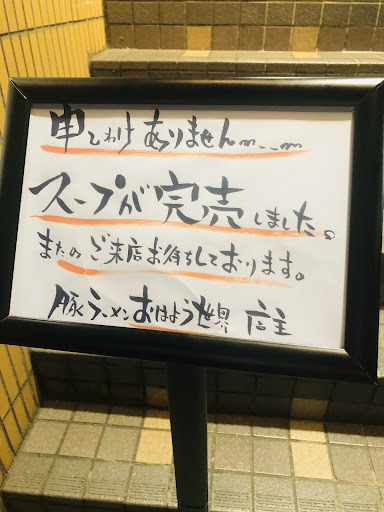 申しわけありませんm--m
スープが完売しました。
またのご来店お待ちしております。
豚ラーメンおはよう世界 店主